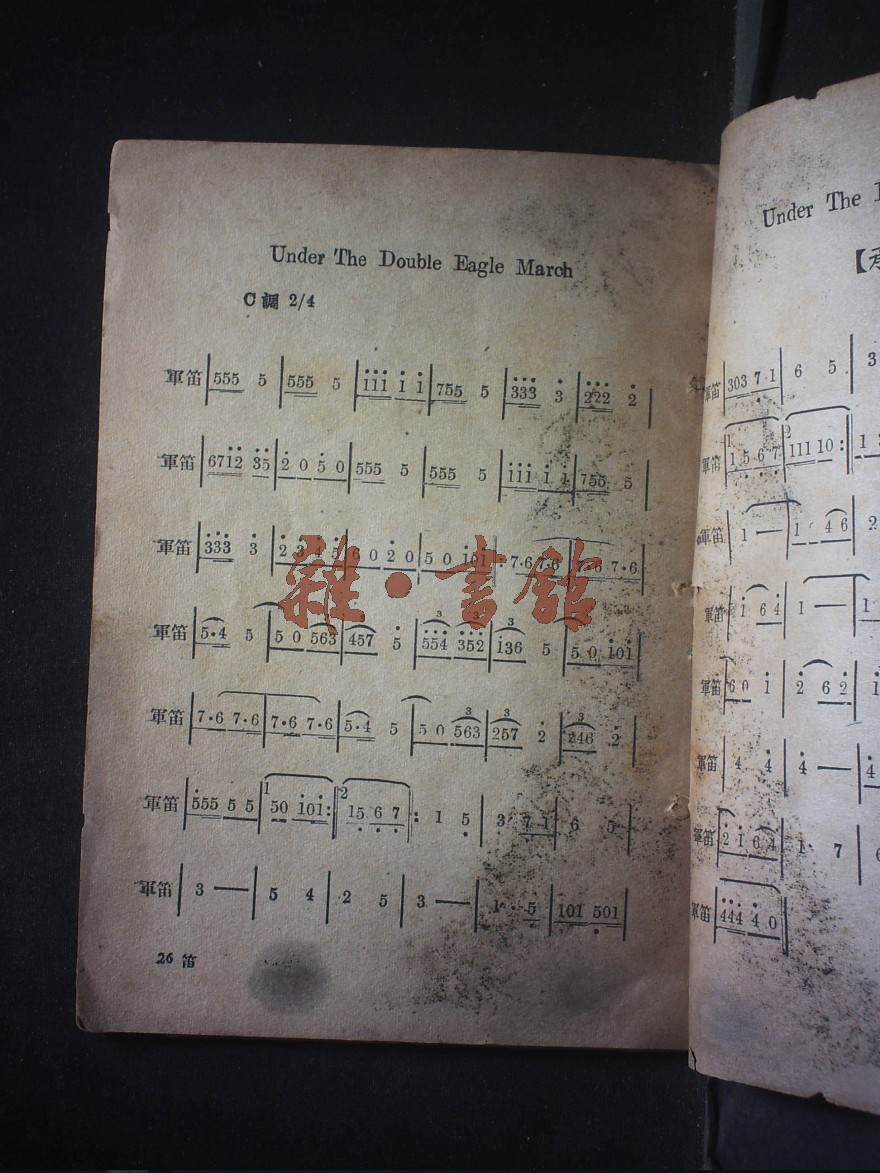 Under The Double Eagle March
C調 2/4
軍笛 | 555 5 | 555 5 | i̇i̇i̇ i̇ i̇ | 755 5 | 3̇3̇3̇ 3̇ | 2̇2̇2̇ 2̇ |
軍笛 | 671̇2̇ 3̇5̇ | 2̇ 0 5̇ 0 | 555 5 | 555 5 | 1̇1̇1̇ 1̇ 1̇ | 755 5 |
軍笛 | 3̇3̇3̇ 3̇ | 2̇ 3̇ 4̇ 5̇ | 6 0 2̇ 0 | 5 0 1̇01̇ |: 7·6 7·6 | 7·6 7·6 |
軍笛 | 5·4 5 | 5 0 563 | 457 5̇ | 5̇5̇4̇ 3̇5̇2̇ | 1̇36 5 | 5 0 1̇01̇ |
軍笛 | 7·6 7·6 | 7·6 7·6 | 5·4 5 | 5 0 563 | 257 2̇ | 246 2̇ |
軍笛 | 5̇55 5 5 | 1 50 1̇01̇ :| 2 15 6 7 |: 1 5̣ | 3 7 1 | 6 5 |
軍笛 | 3 — | 5 4 | 2 5 | 3 — | 1 · 5 | 101 501 |
26 笛
雜·書館
Under The
【
軍笛 | 303 7 1 | 6 5 | 3
軍笛 | 1 1 5 6 7 | 2 111 10 :| 1
軍笛 | 1 — | 1 4 6 | 2
軍笛 | 1̇ 6 4̇ | 1 — | 1
軍笛 | 6 0 1̇ | 2̇ 6 2̇ | 1̇
軍笛 | 4 4̇ | 4̇ — | 4
軍笛 | 2̇ 1̇ 6 4 | 1 7 | 6
軍笛 | 4̇4̇4̇ 4̇ 0 |